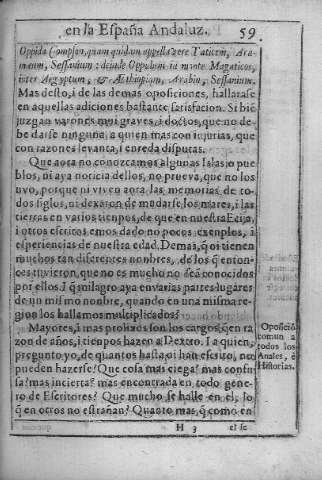 en la España Andaluz. 59
Oppida Compsen, quam quidam appellavere Taticem, Ara-
meum, Sessanium: deinde Oppidum in monte Magaticos,
inter Aegyptum, & Aethiopiam, Arabin, Sessanium.
Mas desto, i de las demas oposiciones, hallarase
en aquellas adiciones bastante satisfacion. Si biē
juzgan varones mui graves, i doctos, que no de-
be darse ninguna a quien mas con injurias, que
con razones levanta, i enreda disputas.
Que aora no conozcamos algunas Islas, o pue
blos, ni aya noticia dellos, no prueva, que no los
uvo, porque ni viven aora las memorias de to-
dos siglos, ni dexaron de mudarse los mares, i las
tierras en varios tienpos, de que en nuestra Ecija,
i otros escritos emos dado no pocos exenplos, i
esperiencias de nuestra edad. Demas, q̄ oi tienen
muchos tan diferentes nonbres, de los q̄ enton-
ces tuvieron, que no es mucho no seā conocidos
por ellos. I q̄ milagro aya en varias partes lugares
de un mismo nonbre, quando en una misma re-
gion los hallamos multiplicados?
Mayores, i mas prolixos son los cargos, q̄ en ra
zon de años, i tienpos hazen a Dextro. I a quien,
pregunto yo, de quantos hasta oi han escrito, no
pueden hazerse? Que cosa mas ciega? mas confu
sa? mas incierta? mas encontrada en todo gene-
ro de Escritores? Que mucho se halle en el, lo
q̄ en otros no estrañan? Quanto mas, q̄ como en
Oposiciō
comun a
todos los
Anales, è
Historias.
H 3 el se